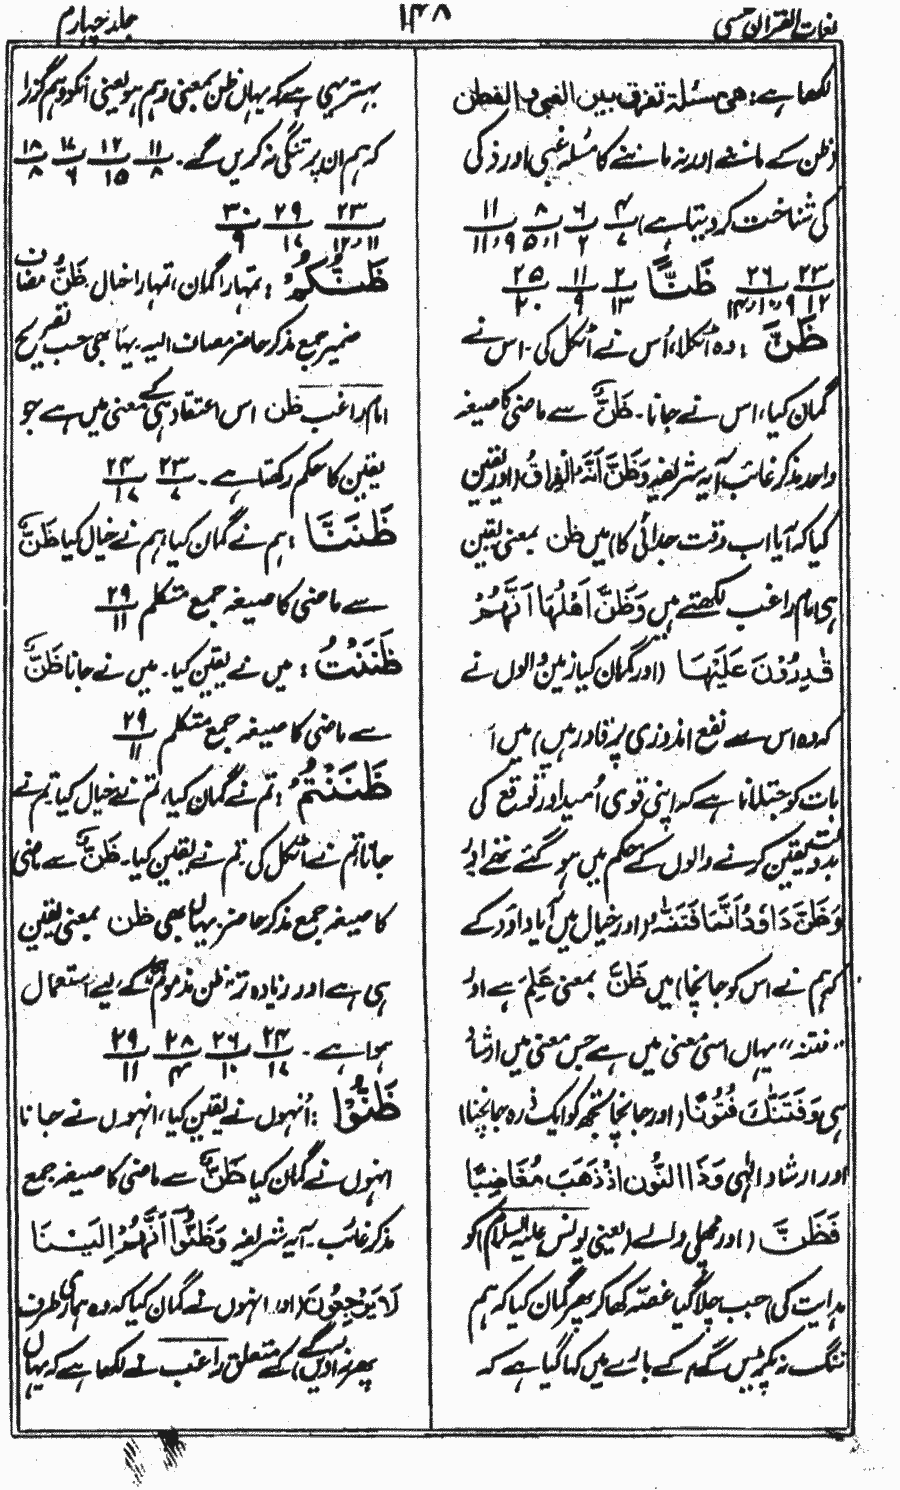 لغات القرآن حسی
۱۴۸
جلد چہارم
لکھا ہے: ھی مسئلۃ تفرق بین الغبی والفطن
وظن کے ماننے اور نہ ماننے کا مسئلہ غبی اور ذکی
کی شناخت کر دیتا ہے)
ظَنًّا
ظَنَّ: وہ اٹکلا، اُس نے اٹکل کی۔ اس نے
گمان کیا، اس نے جانا۔ ظَنٌّ سے ماضی کا صیغہ
واحد مذکر غائب آیہ شریفہ وَظَنَّ اَنَّہُ الْفِرَاقُ (اور یقین
کیا کہ آیا اب وقت جدائی کا) میں ظن بمعنی یقین
ہی امام راغب لکھتے ہیں وَظَنَّ اَھْلُہَا اَنَّہُمْ
قٰدِرُوْنَ عَلَیْہَا (اور گمان کیا زمین والوں نے
کہ وہ اس سے نفع اندوزی پر قادر ہیں) میں اِس
بات کو جتلانا ہے کہ اپنی قوی اُمید اور توقع کی
بدولت یقین کرنے والوں کے حکم میں ہو گئے تھے اور
وَظَنَّ دَاوٗدُ اَنَّمَا فَتَنّٰہُ (اور خیال میں آیا داؤد کے
کہ ہم نے اس کو جانچا) میں ظَنَّ بمعنی عَلِمَ ہے اور
"فتنہ" یہاں اسی معنی میں ہے جس معنی میں ارشاد
ہی وَفَتَنّٰکَ فُتُوْنًا (اور جانچا تجھ کو ایک ذرہ جانچنا)
اور ارشاد الٰہی وَذَا النُّوْنِ اِذْ ذَھَبَ مُغَاضِبًا
فَظَنَّ (اور مچھلی والے (یعنی یونس علیہ السلام) کو
ہدایت کی) جب چلا گیا غصّہ کھا کر پھر گمان کیا کہ ہم
تنگ نہ پکڑیں گے) کے بارے میں کہا گیا ہے کہ
بہتر یہی ہے کہ یہاں ظن بمعنی وہم ہو یعنی انکو وہم گزرا
کہ ہم ان پر تنگی نہ کریں گے۔
ظَنُّکُمْ: تمہارا گمان، تمہارا خیال ظَنُّ مضاف
ضمیر جمع مذکر حاضر مضاف الیہ۔ یہاں بھی حسب تصریح
امام راغب ظن اس اعتقاد ہی کے معنی میں ہے جو
یقین کا حکم رکھتا ہے۔
ظَنَنَّا: ہم نے گمان کیا، ہم نے خیال کیا ظَنٌّ
سے ماضی کا صیغہ جمع متکلم
ظَنَنْتُ: میں نے یقین کیا۔ میں نے جانا ظَنٌّ
سے ماضی کا صیغہ جمع متکلم
ظَنَنْتُمْ: تم نے گمان کیا، تم نے خیال کیا تم نے
جانا تم نے اٹکل کی تم نے یقین کیا۔ ظَنٌّ سے ماضی
کا صیغہ جمع مذکر حاضر۔ یہاں بھی ظن بمعنی یقین
ہی ہے اور زیادہ تر ظن مذموم ہی کے لیے استعمال
ہوا ہے۔
ظَنُّوْا: اُنہوں نے یقین کیا، انہوں نے جانا
انہوں نے گمان کیا ظَنٌّ سے ماضی کا صیغہ جمع
مذکر غائب۔ آیہ شریفہ وَظَنُّوْٓا اَنَّہُمْ اِلَیْنَا
لَا یُرْجَعُوْنَ (اور انہوں نے گمان کیا کہ وہ ہماری طرف
پھر نہ آویں گے) کے متعلق راغب نے لکھا ہے کہ یہاں